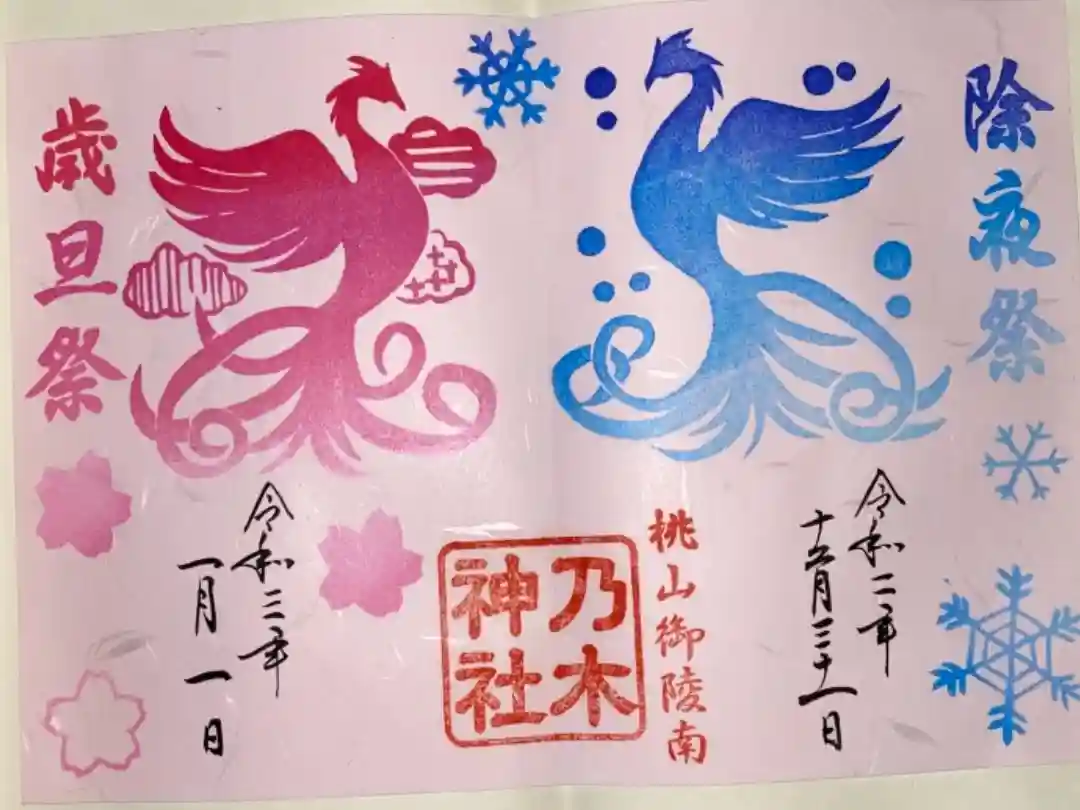 除夜祭
令和二年
十二月三十一日
桃山御陵南
乃木
神社
令和三年
一月一日
歳旦祭